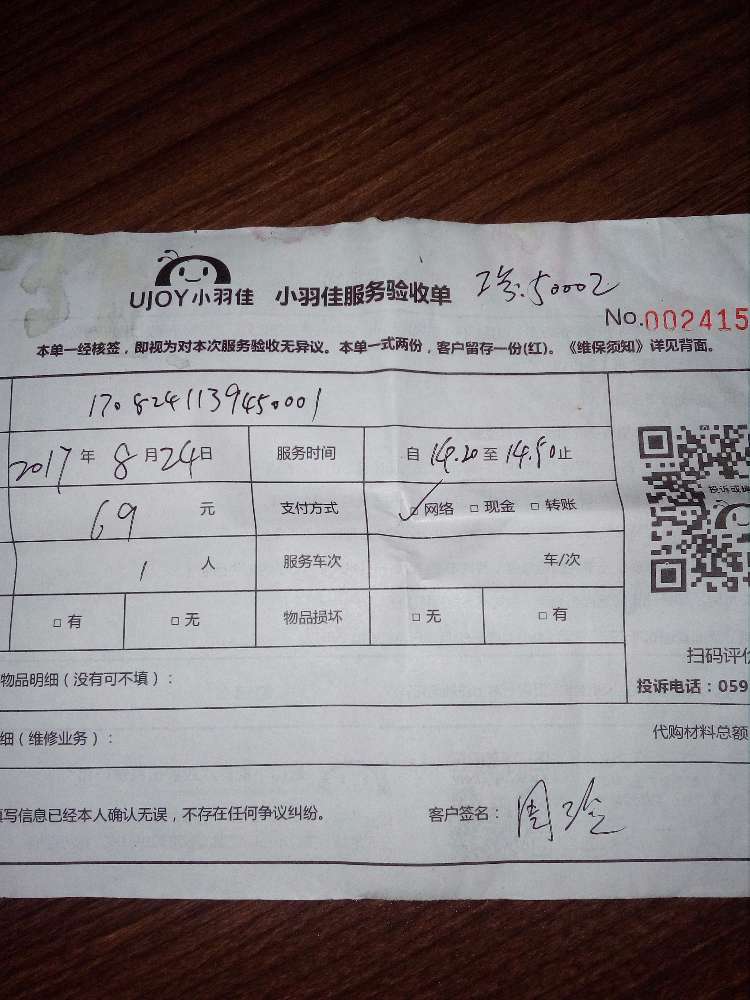 UJOY小羽佳 小羽佳服务验收单 工号:50002
No.002415
本单一经核签，即视为对本次服务验收无异议。本单一式两份，客户留存一份(红)。《维保须知》详见背面。
1708241139450001
2017年8月24日 服务时间 自14.20至14.50止
69元 支付方式 ✓□网络 □现金 □转账
1人 服务车次 车/次
□有 □无 物品损坏 □无 □有
扫码评价
物品明细（没有可不填）：
投诉电话：059
细（维修业务）：
代购材料总额
填写信息已经本人确认无误，不存在任何争议纠纷。 客户签名：周玲